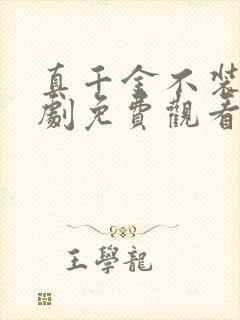 真千金不裝
劇免費觀看
王學龍